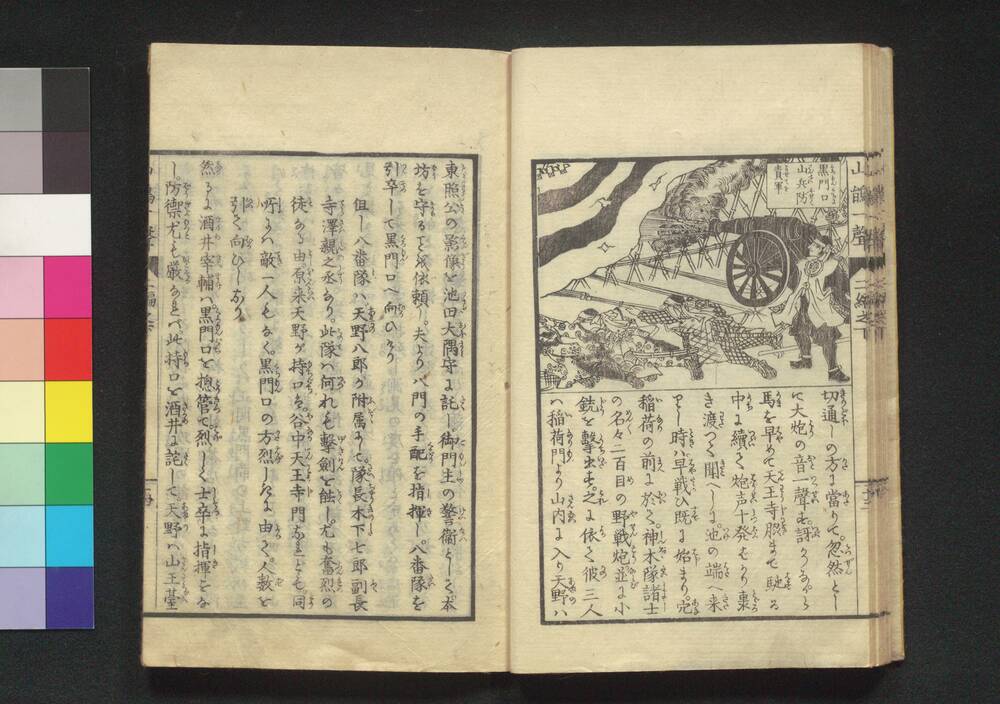 黒門口
山兵防
貴軍
切通しの方に當りて。忽然とし
て大炮の音一聲す。訝りながら
馬を早めて天王寺脇まで馳る
中に續て炮声十発ばかり東
き渡つて聞へしに。池の端へ来
りし時ハ早戦ひ既に始まり。穴
稲荷の前に於て。神木隊諸士
の名々二百目の野戦炮並に小
銃を撃出す。之に依て彼三人
ハ稲荷門より山内に入り天野ハ
東照公の影像を池田大隅守に託し。御門主の警衞として本
坊を守る事を依頼し。夫より八門の手配を指揮し。八番隊を
引卒して黒門口へ向ひけり
但し八番隊ハ。天野八郎が附属にて。隊長木下七郎副長
寺澤親之丞あり。此隊ハ何れも撃劔を能し。尤も奮烈の
徒なる由。原来天野が持口ハ。谷中天王寺門なれども同
所にハ敵一人もなく。黒門口の方烈しきに由て。人数を
引て向ひしなり
然るに酒井宰輔ハ。黒門口を總管て烈しく士卒に指揮をな
し。防禦尤も厳なれバ。此持口を酒井に託して天野ハ山王臺